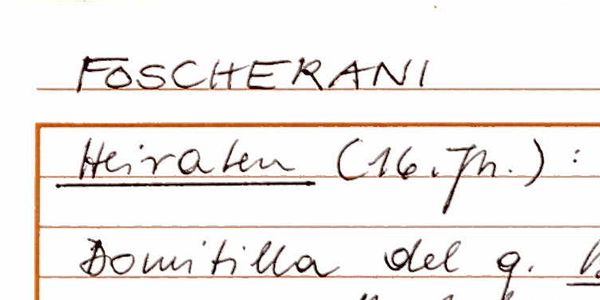 FOSCHERANI
Heiraten (16. Jh.):
Domitilla del q.